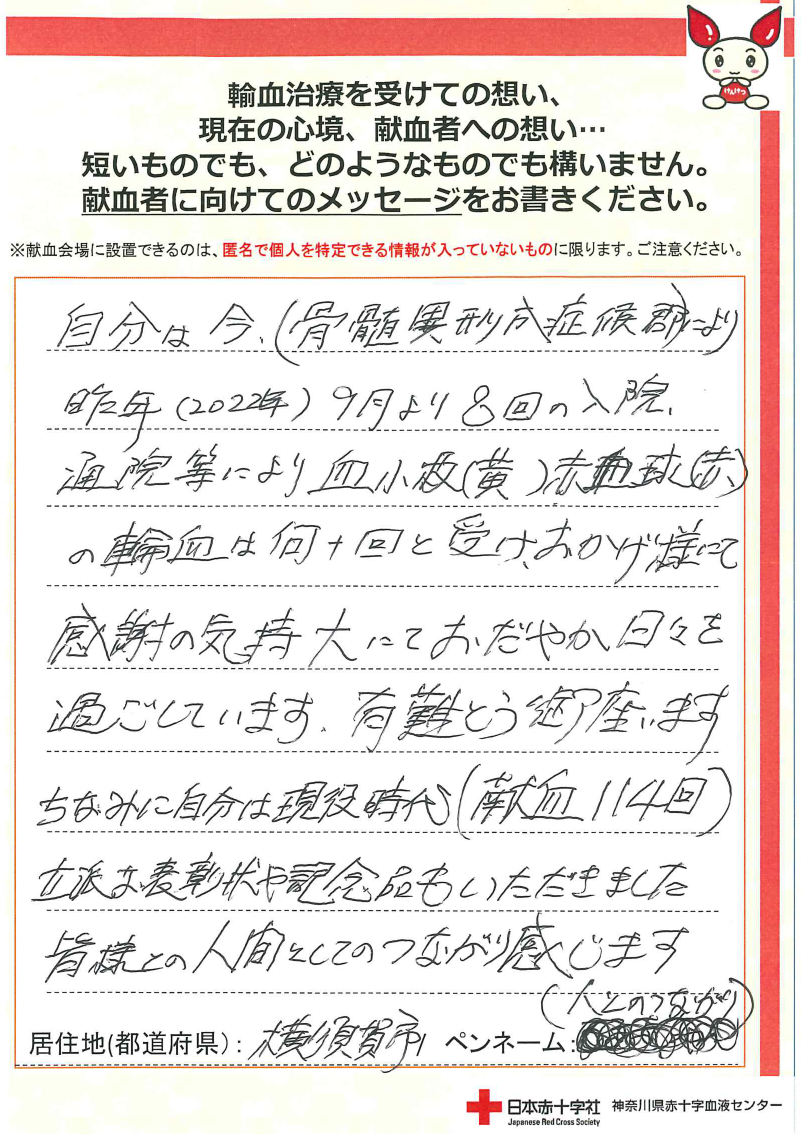 けんけつ
輸血治療を受けての想い、
現在の心境、献血者への想い…
短いものでも、どのようなものでも構いません。
献血者に向けてのメッセージをお書きください。
※献血会場に設置できるのは、匿名で個人を特定できる情報が入っていないものに限ります。ご注意ください。
自分は今、(骨髄異形成症候郡)により
昨年(2022年)9月より8回の入院、
通院等により血小板(黄)赤血球(赤)
の輸血は何十回と受け、おかげ様にて
感謝の気持大にておだやか日々を
過ごしています。有難とう御座います
ちなみに自分は現役時代(献血114回)
立派な表彰状や記念品もいただきました
皆様との人間としてのつながり感じます
(人とのつながり)
居住地(都道府県):横須賀市 ペンネーム:
日本赤十字社 神奈川県赤十字血液センター
Japanese Red Cross Society